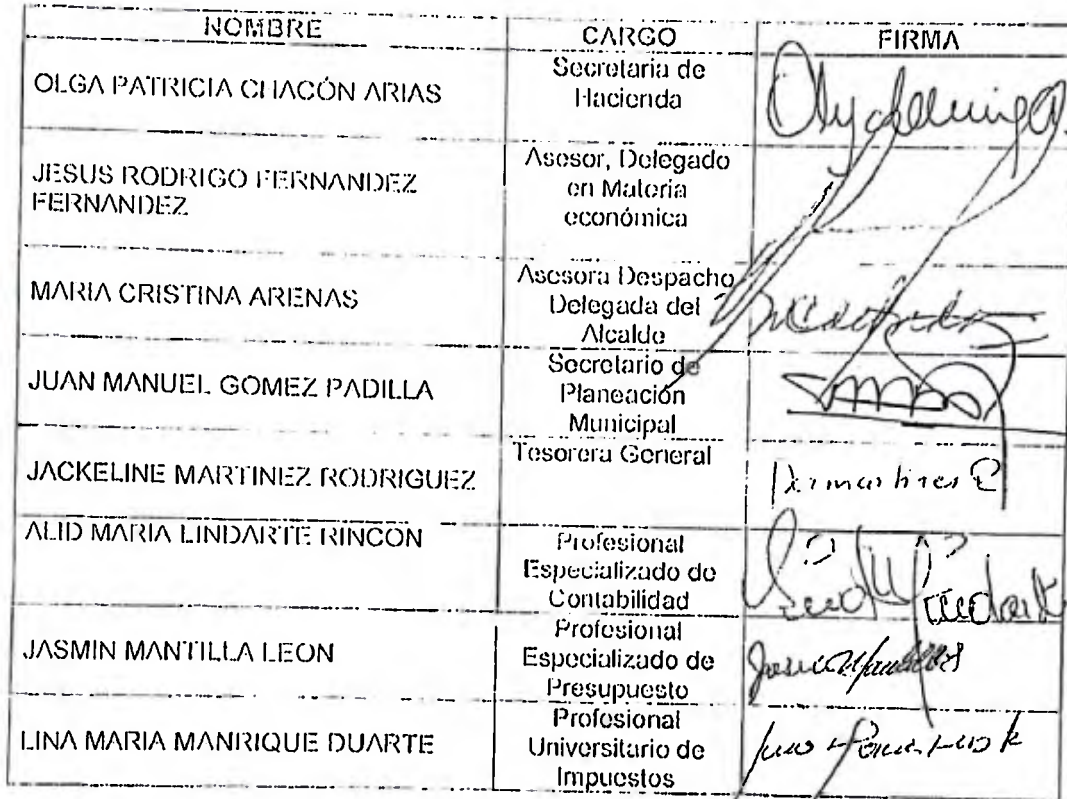 NOMBRE CARGO FIRMA
OLGA PATRICIA CHACÓN ARIAS
Secretaria de
Hacienda
JESUS RODRIGO FERNANDEZ
FERNANDEZ
Asesor, Delegado
en Materia
económica
MARIA CRISTINA ARENAS
Asesora Despacho
Delegada del
Alcalde
JUAN MANUEL GOMEZ PADILLA
Secretario de
Planeación
Municipal
JACKELINE MARTINEZ RODRIGUEZ
Tesorera General
ALID MARIA LINDARTE RINCON
Profesional
Especializado de
Contabilidad
JASMIN MANTILLA LEON
Profesional
Especializado de
Presupuesto
LINA MARIA MANRIQUE DUARTE
Profesional
Universitario de
Impuestos